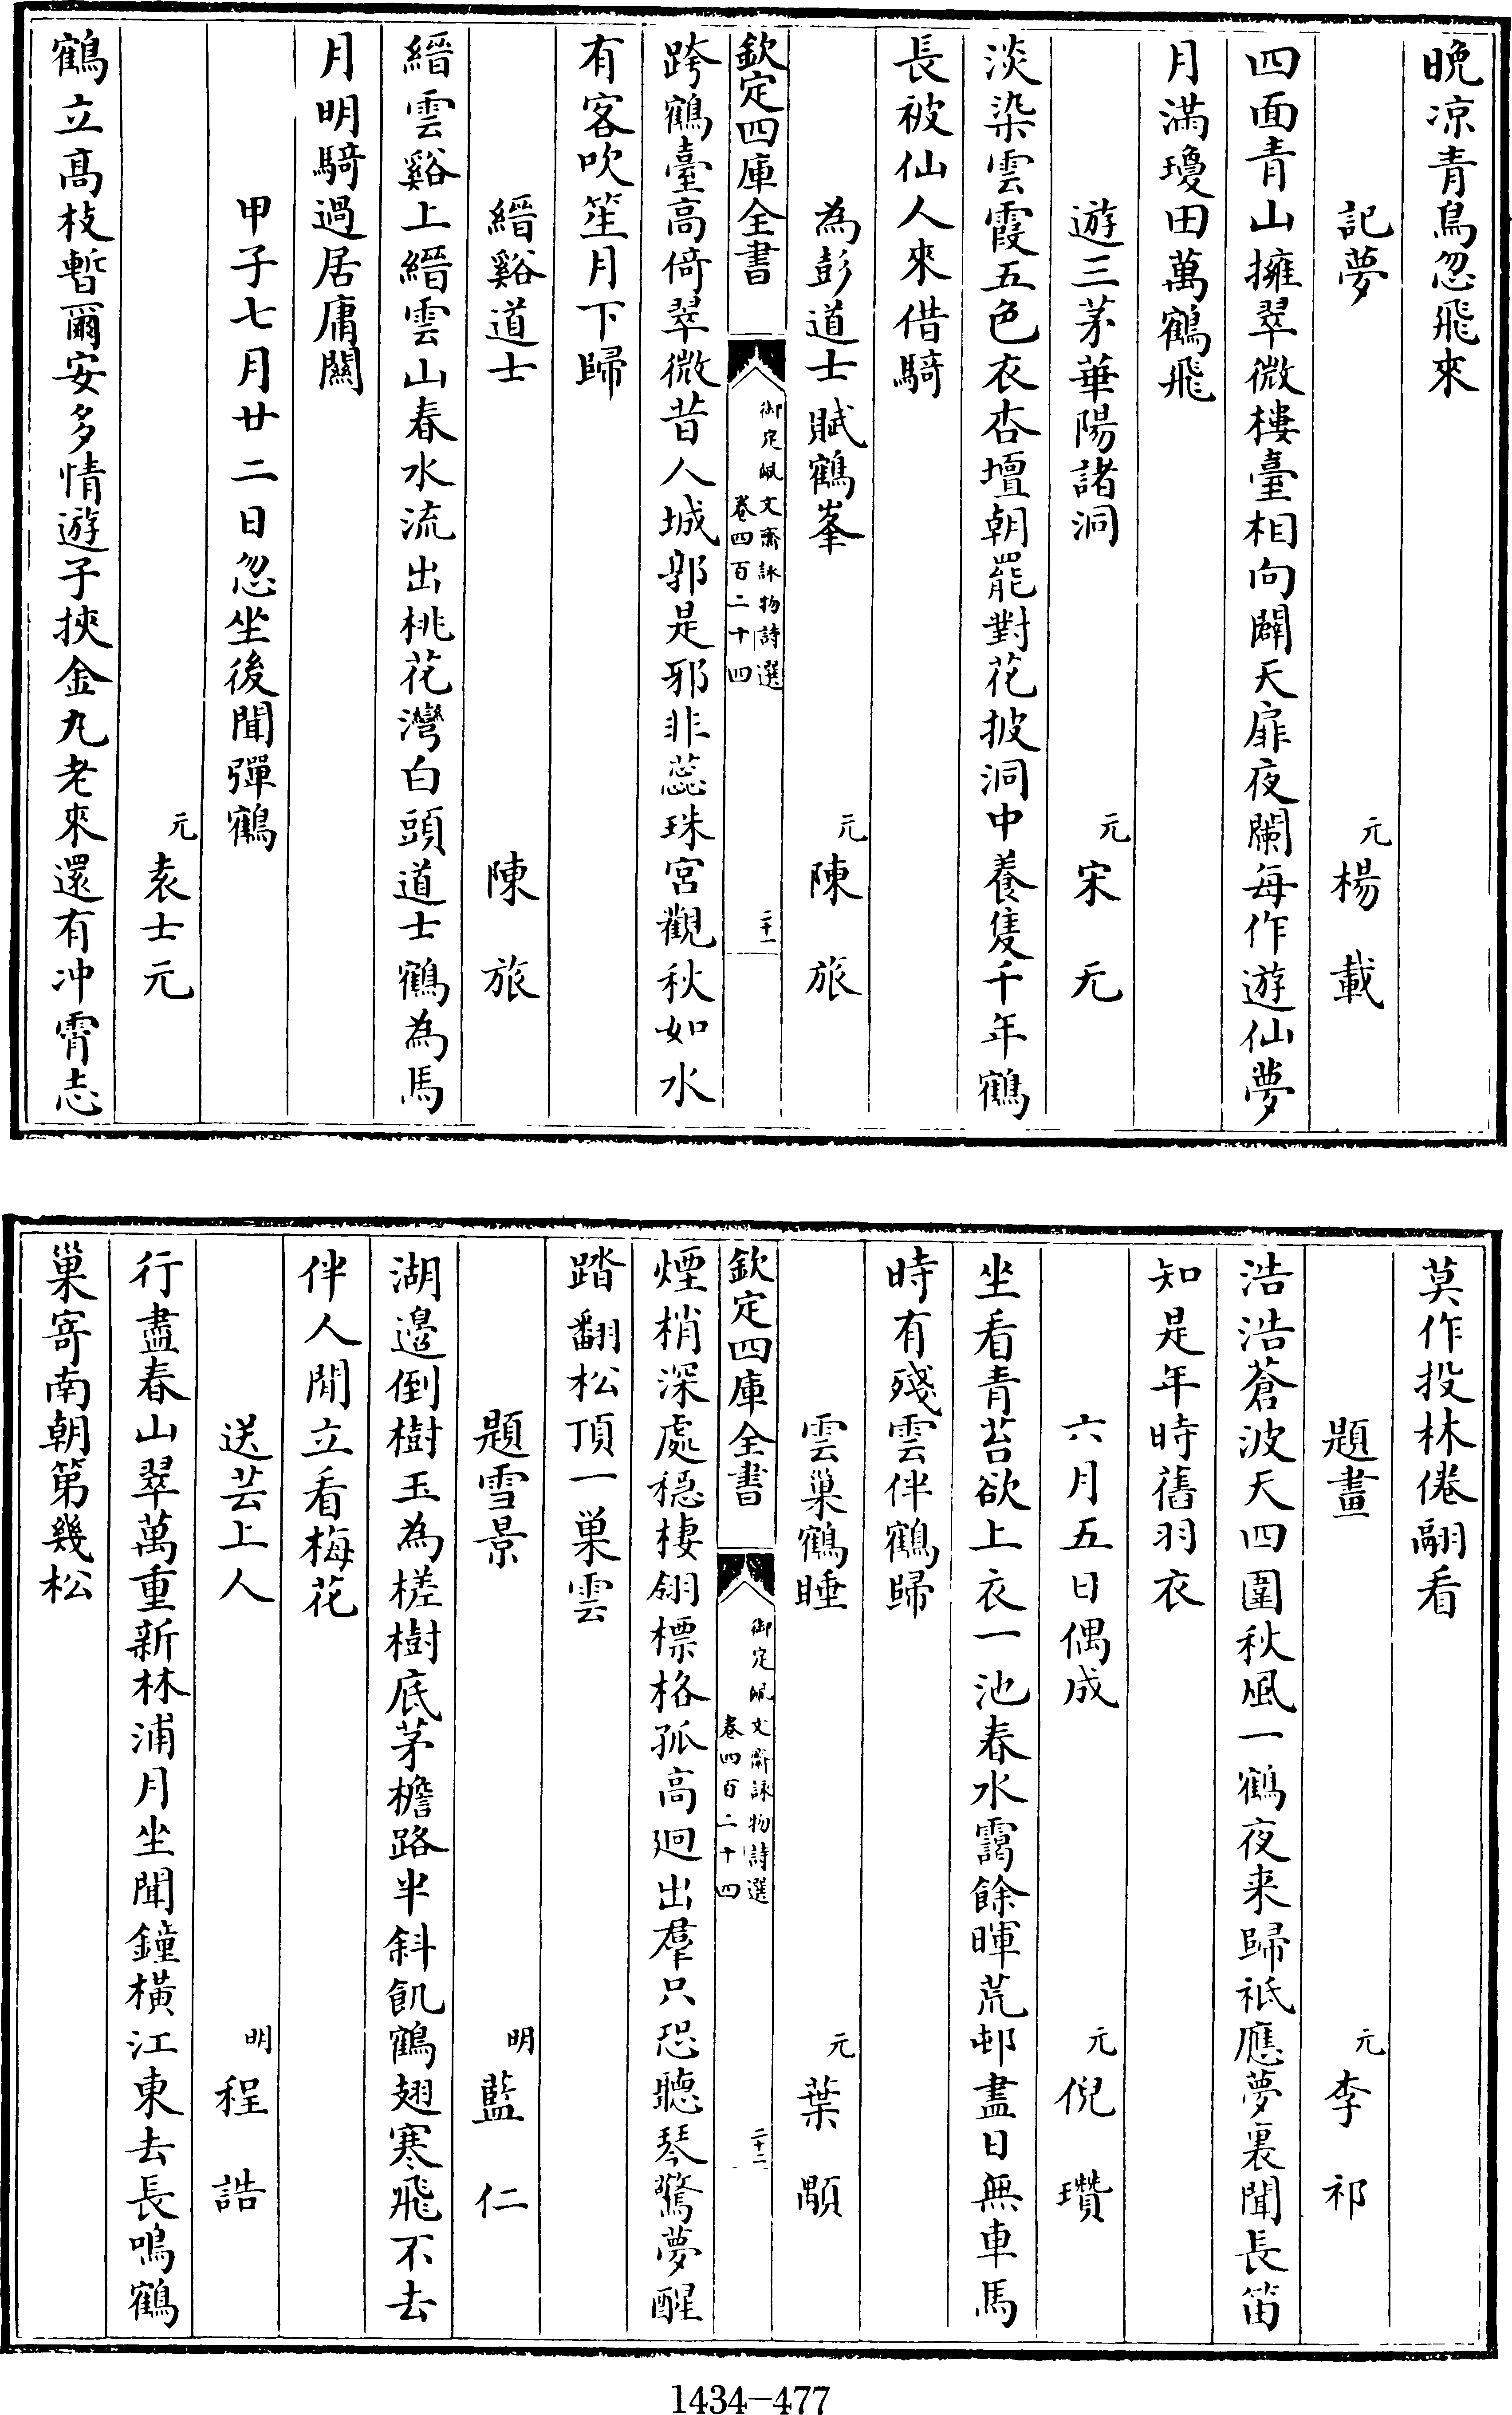 晚凉青鳥忽飛來
記夢
元楊載
四面青山擁翠微樓臺相向闢天扉夜闌每作遊仙夢
月滿瓊田萬鶴飛
遊三茅華陽諸洞
元宋无
淡染雲霞五色衣杏壇朝罷對花披洞中養隻千年鶴
長被仙人來借騎
為彭道士賦鶴峯
元陳旅
欽定四庫全書
御定佩文齋詠物詩選
卷四百二十四
二十一
跨鶴臺高倚翠微昔人城郭是邪非蕊珠宮觀秋如水
有客吹笙月下歸
縉谿道士
陳旅
縉雲谿上縉雲山春水流出桃花灣白頭道士鶴為馬
月明騎過居庸關
甲子七月廿二日忽坐後聞彈鶴
元袁士元
鶴立高枝暫爾安多情遊子挾金丸老來還有冲霄志
莫作投林倦翮看
題畫
元李祁
浩浩蒼波天四圍秋風一鶴夜来歸祗應夢裏聞長笛
知是年時舊羽衣
六月五日偶成
元倪瓚
坐看青苔欲上衣一池春水靄餘暉荒邨盡日無車馬
時有殘雲伴鶴歸
雲巢鶴睡
元葉顒
欽定四庫全書
御定佩文齋詠物詩選
卷四百二十四
二十二
煙梢深處穏棲翎標格孤高迥出羣只恐聽琴驚夢醒
踏翻松頂一巢雲
題雪景
明藍仁
湖邊倒樹玉為槎樹底茅檐路半斜飢鶴翅寒飛不去
伴人閒立看梅花
送芸上人
明程誥
行盡春山翠萬重新林浦月坐聞鐘橫江東去長鳴鶴
巢寄南朝第幾松
1434-477